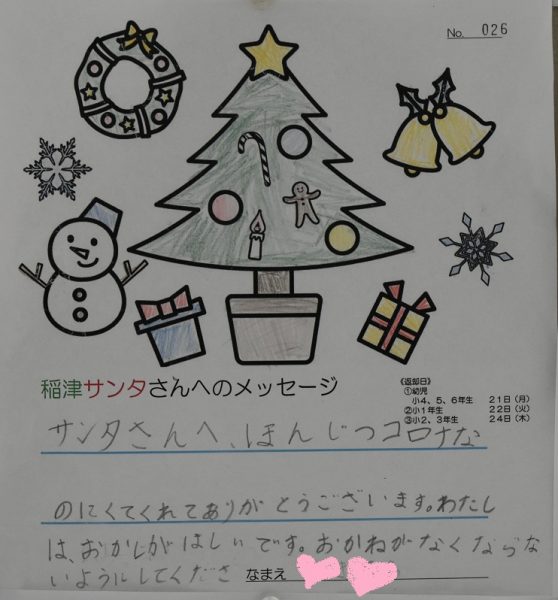 No. 026
稲津サンタさんへのメッセージ
《返却日》
①幼児
小4、5、6年生 21日(月)
②小1年生 22日(火)
③小2、3年生 24日(木)
サンタさんへ、ほんじつコロナな
のにくてくれてありがとうございます。わたし
は、おかしがほしいです。おかねがなくならな
いようにしてくださ なまえ